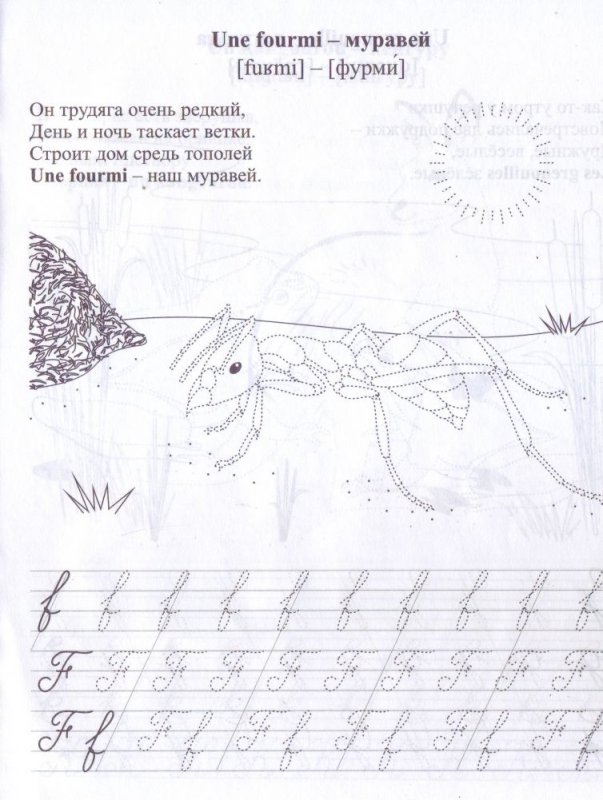 Une fourmi – муравей
[fuʁmi] – [фурми́]
Он трудяга очень редкий,
День и ночь таскает ветки.
Строит дом средь тополей
Une fourmi – наш муравей.
f f f f f f f f f f
F F F F F F F F F F
F f F f F f F f F f F